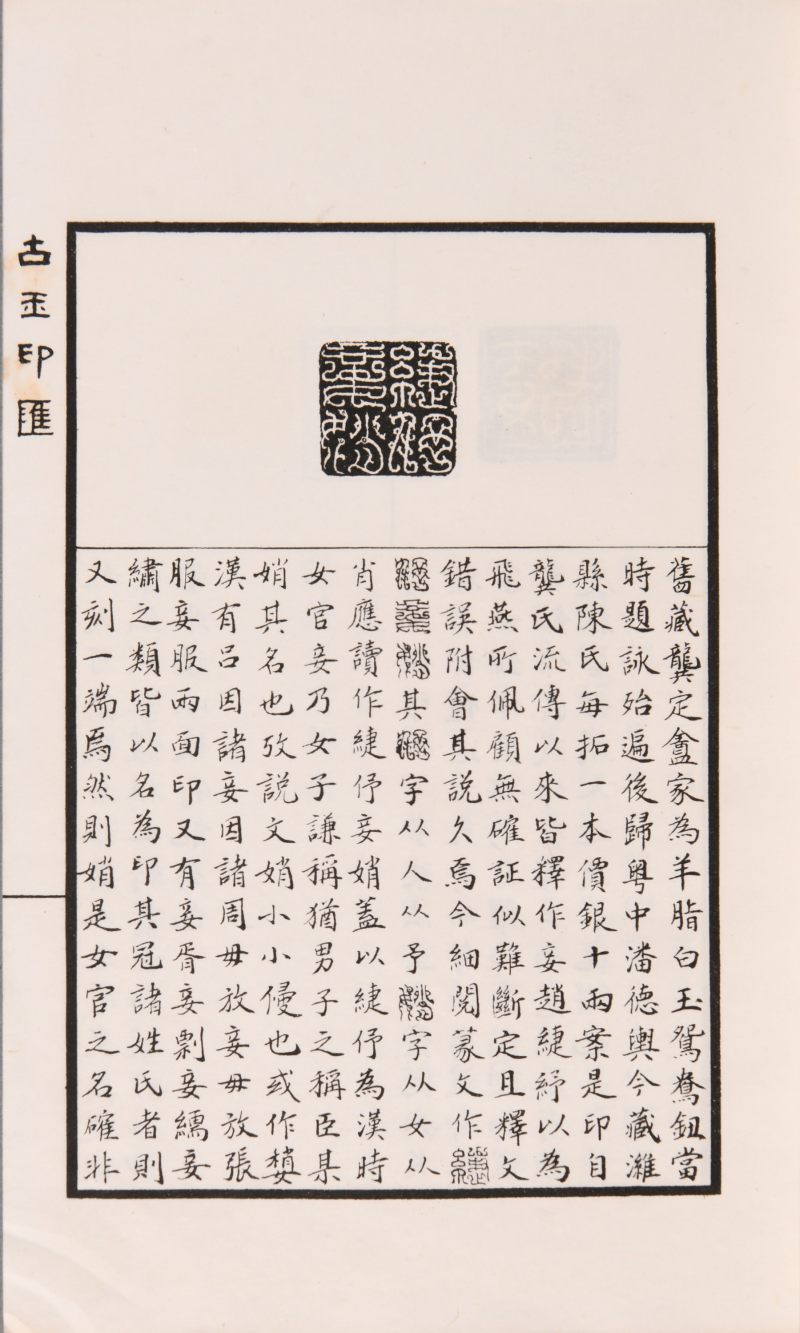 古玉印匯
緁伃妾娋
舊藏龔定盦家為羊脂白玉鴛鴦鈕當
時題詠殆遍後歸粵中潘德輿今藏濰
縣陳氏每拓一本價銀十兩案是印自
龔氏流傳以來皆釋作妾趙緁紓以為
飛燕所佩顧無確証似難斷定且釋文
錯誤附會其說久焉今細閱篆文作緁
伃妾娋其伃字从人从予娋字从女从
肖應讀作緁伃妾娋蓋以緁伃為漢時
女官妾乃女子謙稱猶男子之稱臣某
娋其名也攷說文娋小小侵也或作㛮
漢有呂因諸妾因諸周毋放妾毋放張
服妾服兩面印又有妾胥妾剽妾繻妾
繡之類皆以名為印其冠諸姓氏者則
又刻一端焉然則娋是女官之名確非